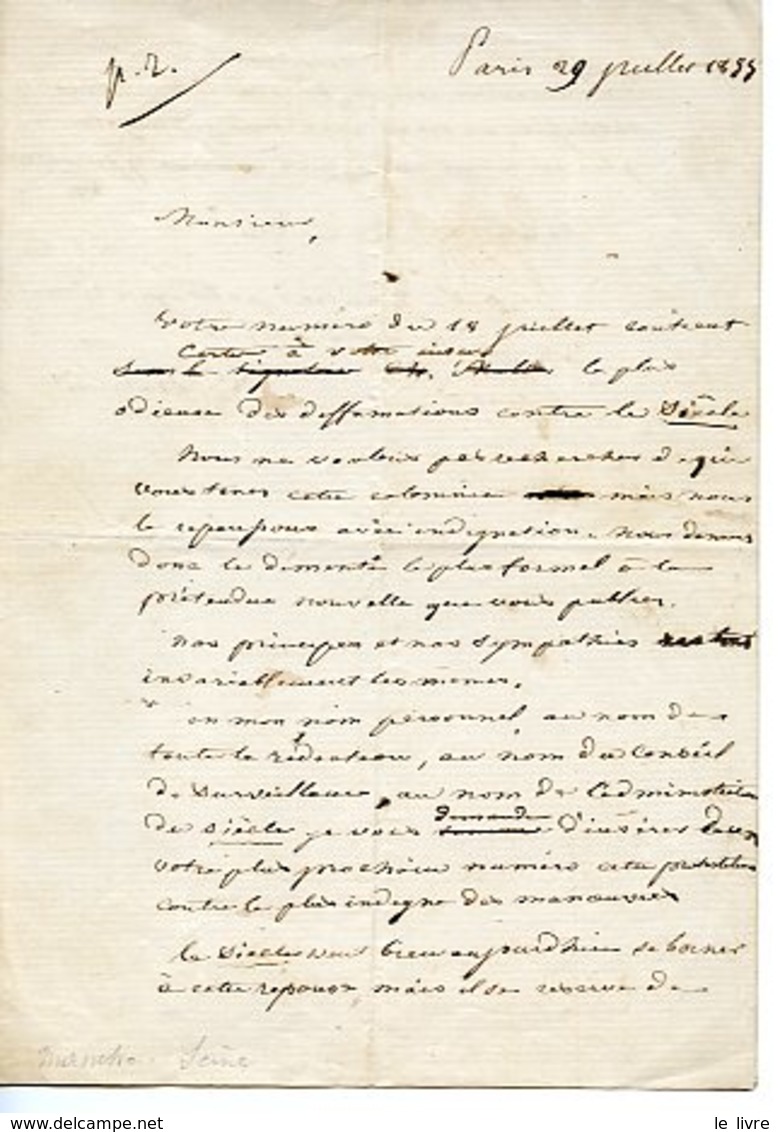 p. r.
Paris 29 juillet 1855
Monsieur,
Votre numéro du 18 juillet contient
certes à votre insu
sous la signature la plus
odieuse des deffamations contre le Siècle
Nous ne voulons pas rechercher de qui
vous tenez cette calomnie mais nous
la repoussons avec indignation. Nous donnons
donc le démenti le plus formel à la
prétendue nouvelle que vous publiez.
Nos principes et nos sympathies restent
invariablement les mêmes.
en mon nom personnel, au nom de
toute la rédaction, au nom du Conseil
de surveillance, au nom de l'administration
du siècle je vous demande d'insérer dans
votre plus prochain numéro cette protestation
contre la plus indigne des manœuvres
le Siècle veut bien aujourd'hui se borner
à cette réponse, mais il se réserve de
Seine
le livre